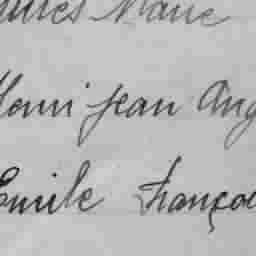 Marie
Henri Jean Ang
Emile Françoi